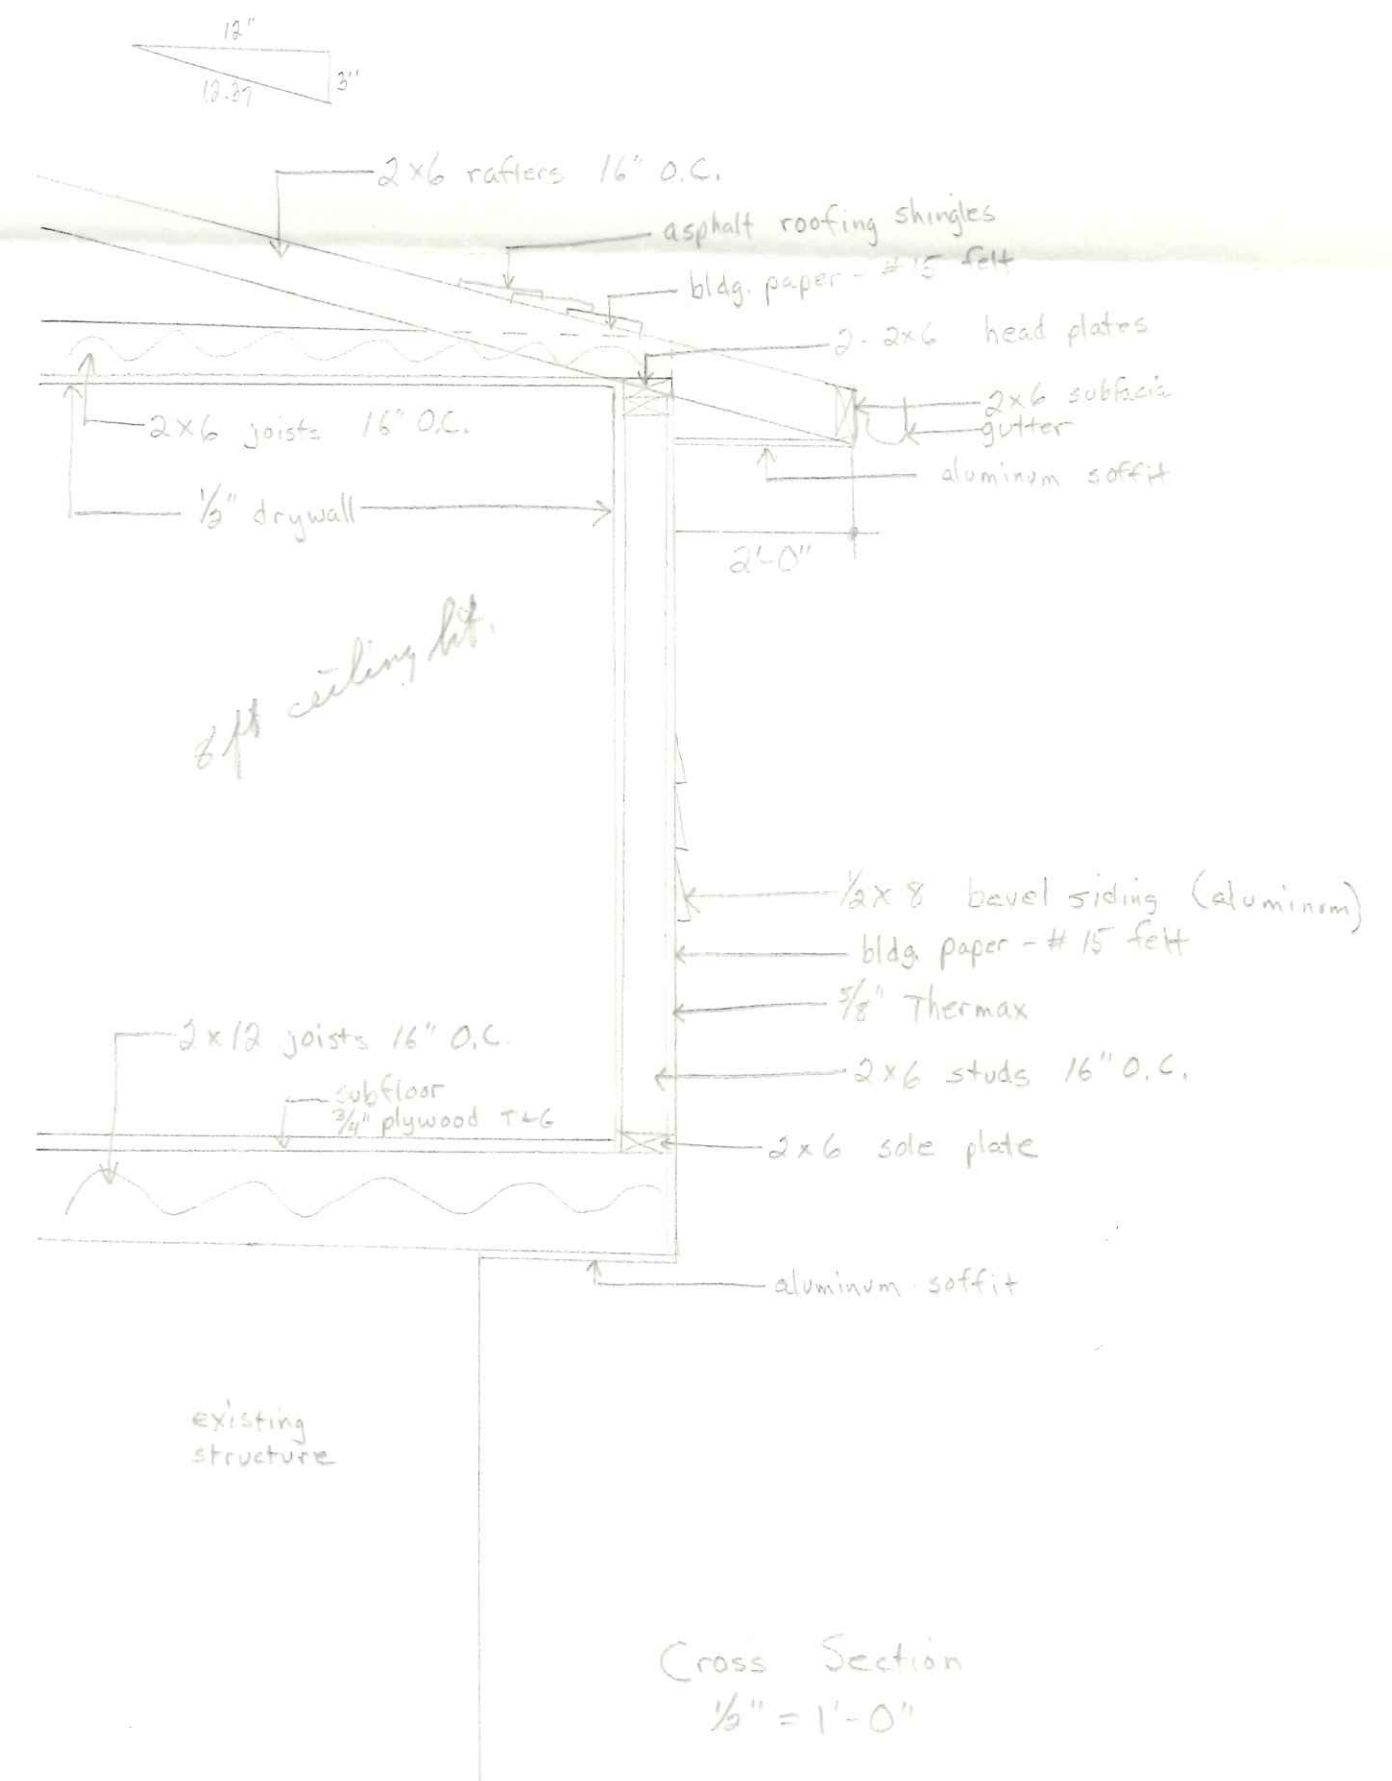 12"
3"
12.37
2×6 rafters 16" O.C.
asphalt roofing shingles
bldg. paper - #15 felt
2- 2×6 head plates
2×6 subfacia
gutter
2×6 joists 16" O.C.
aluminum soffit
1/2" drywall
2'-0"
8 ft ceiling ht.
1/2×8 bevel siding (aluminum)
bldg. paper - #15 felt
5/8" Thermax
2×12 joists 16" O.C.
2×6 studs 16" O.C.
subfloor
3/4" plywood T&G
2×6 sole plate
aluminum soffit
existing
structure
Cross Section
1/2" = 1'-0"